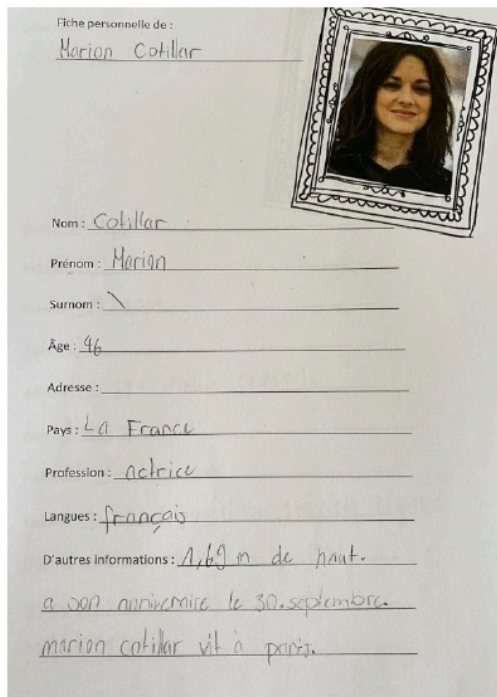 Fiche personnelle de :
Marion Cotillar
Nom : Cotillar
Prénom : Marion
Surnom : \
Âge : 46
Adresse :
Pays : La France
Profession : actrice
Langues : français
D'autres informations : 1,69 m de haut.
a son anniversaire le 30. septembre.
marion cotillar vit à paris.